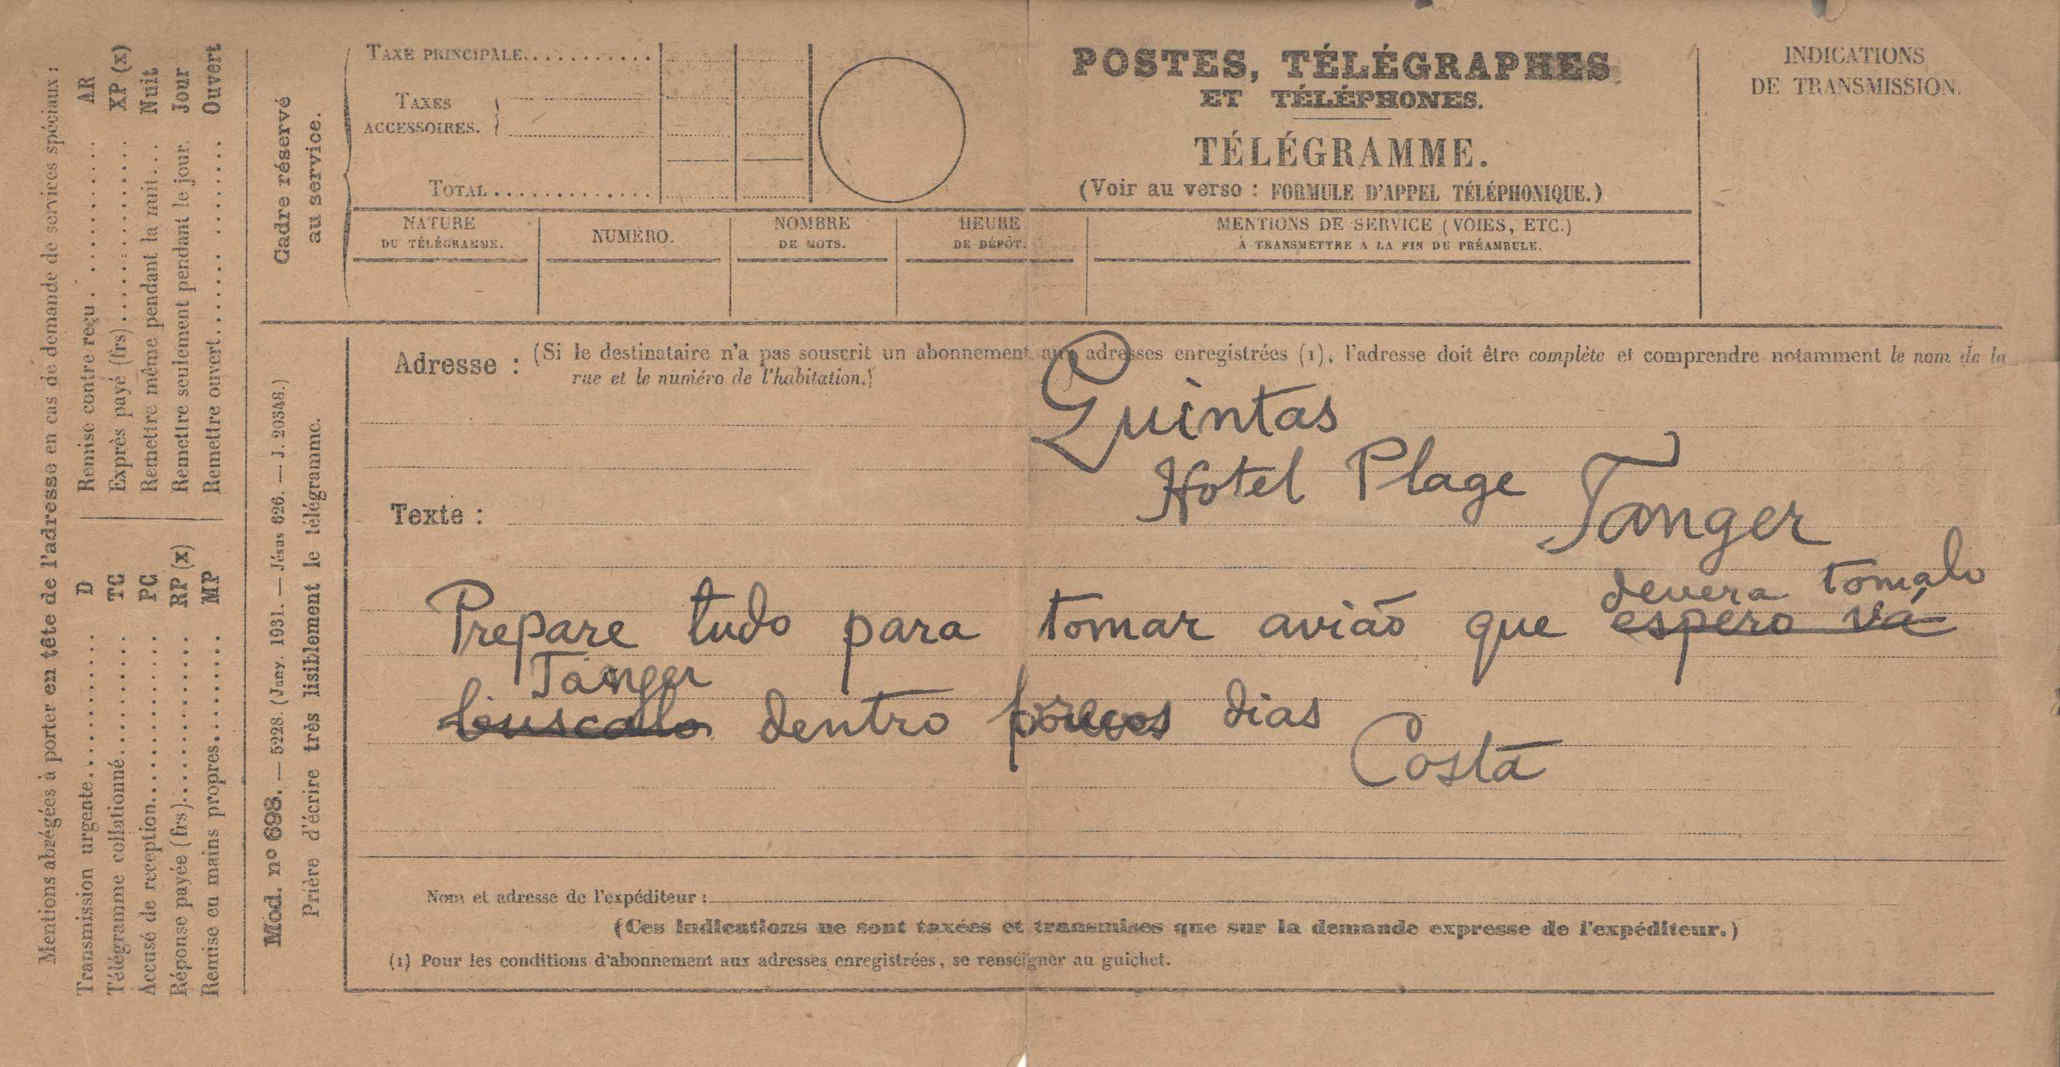 Mentions abrégées à porter en tête de l'adresse en cas de demande de services spéciaux :
Transmission urgente............ D
Télégramme collationné............ TC
Accusé de réception............ PC
Réponse payée (frs)............ RP (x)
Remise en mains propres............ MP
Remise contre reçu............ AR
Exprès payé (frs)............ XP (x)
Remettre même pendant la nuit... Nuit
Remettre seulement pendant le jour. Jour
Remettre ouvert............ Ouvert
Mod. nº 698. — 5228. (Janv. 1931. — Jésus 626. — J. 20348.)
Prière d'écrire très lisiblement le télégramme.
Cadre réservé
au service.
TAXE PRINCIPALE............
TAXES
ACCESSOIRES.
TOTAL..............
POSTES, TÉLÉGRAPHES
ET TÉLÉPHONES.
TÉLÉGRAMME.
(Voir au verso : FORMULE D'APPEL TÉLÉPHONIQUE.)
INDICATIONS
DE TRANSMISSION.
NATURE
DU TÉLÉGRAMME.
NUMÉRO.
NOMBRE
DE MOTS.
HEURE
DE DÉPÔT.
MENTIONS DE SERVICE (VOIES, ETC.)
À TRANSMETTRE A LA FIN DU PRÉAMBULE.
Adresse : (Si le destinataire n'a pas souscrit un abonnement aux adresses enregistrées (1), l'adresse doit être complète et comprendre notamment le nom de la
rue et le numéro de l'habitation.)
Quintas
Hotel Plage Tanger
Texte :
devera tomalo
Prepare tudo para tomar avião que espero vá
Tanger
buscallo dentro poucos dias
Costa
Nom et adresse de l'expéditeur :
(Ces indications ne sont taxées et transmises que sur la demande expresse de l'expéditeur.)
(1) Pour les conditions d'abonnement aux adresses enregistrées, se renseigner au guichet.